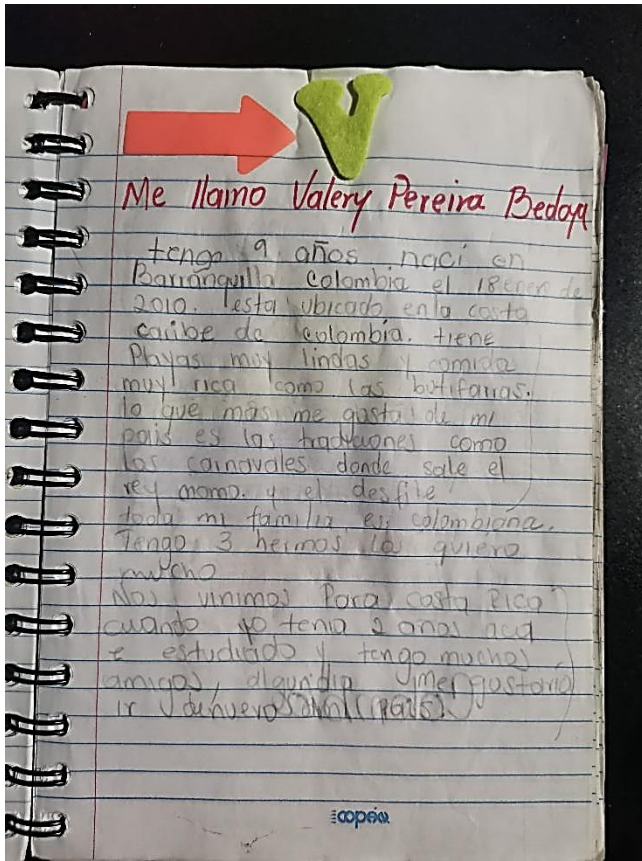 V
Me llamo Valery Pereira Bedoya
tengo 9 años naci en
Barranquilla colombia el 18 enero de
2010. esta ubicado en la costa
caribe de colombia. tiene
Playas muy lindas y comida
muy rica como las butifarras.
lo que más me gusta de mi
pais es las tradiciones como
los carnavales donde sale el
rey momo. y el desfile
toda mi familia es colombiana.
Tengo 3 hermos los quiero
mucho
Nos vinimos Para costa Rica
cuando yo tenia 2 años acá
e estudiado y tengo muchos
amigos, algun dia me gustaria
ir de nuevo a mi (pais).
copán